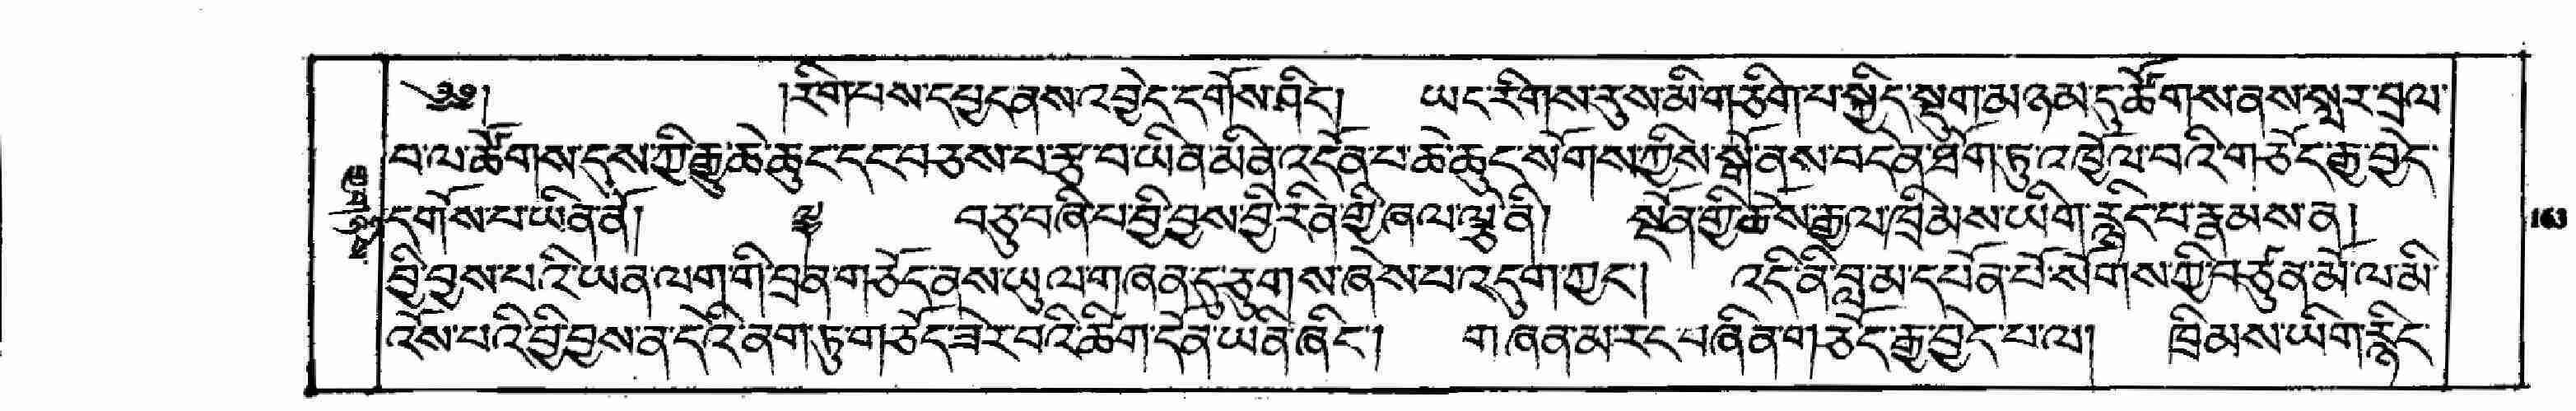 ༄༅། །རིགི་པས་དཔྱད་ནས་འབྱེད་དགོས་ཤིང། ཡང་རིགས་རུས་མི་གཅིག་པ་སྐྱིད་སྡུག་མཉམ་དུ་ཚོགས་ནས་སླར་བྲལ་
བ་ལ་ཚོགས་དུས་ཀྱི་རྒྱུ་ཆེ་ཆུང་དང་བཅས་པ་རྩྭ་བ་ཡིན་མིན་འདོན་པ་ཆེ་ཆུང་སོགས་ཀྱིས་སྒོ་ནས་བདེན་ཐོག་ཏུ་འཁྱོལ་བའི་གཅོད་རྒྱ་བྱེད་
དགོས་པ་ཡིན་ནོ། ༈ བཅུ་བཞི་པ་བྱི་བྱས་བྱི་རིན་གྱི་ཞལ་ལྕེ་ནི། སྔོན་གྱི་ཆོས་རྒྱལ་ཁྲིམས་ཡིག་རྙིང་པ་རྣམས་ན།
བྱི་བྱས་པའི་ཡན་ལག་གི་བྲན་གཅོད་ནས་ཡུལ་གཞན་དུ་ཅུགས་ཞེས་པ་འདུག་ཀྱང། འདི་ནི་བླ་མ་དཔོན་པོ་སོགས་ཀྱི་བཙུན་མོ་ལ་མི་
འོས་པའི་བྱི་བྱས་ན་དེའི་ནག་ཏུ་གཅོད་ཟེར་བའི་ཆིག་དོན་ཡིན་ཞིང་། གཞན་མ་རང་པ་ཞིན་གཅོད་རྒྱ་བྱེད་པ་ལ། ཁྲིམས་ཡིག་རྙིང་
163